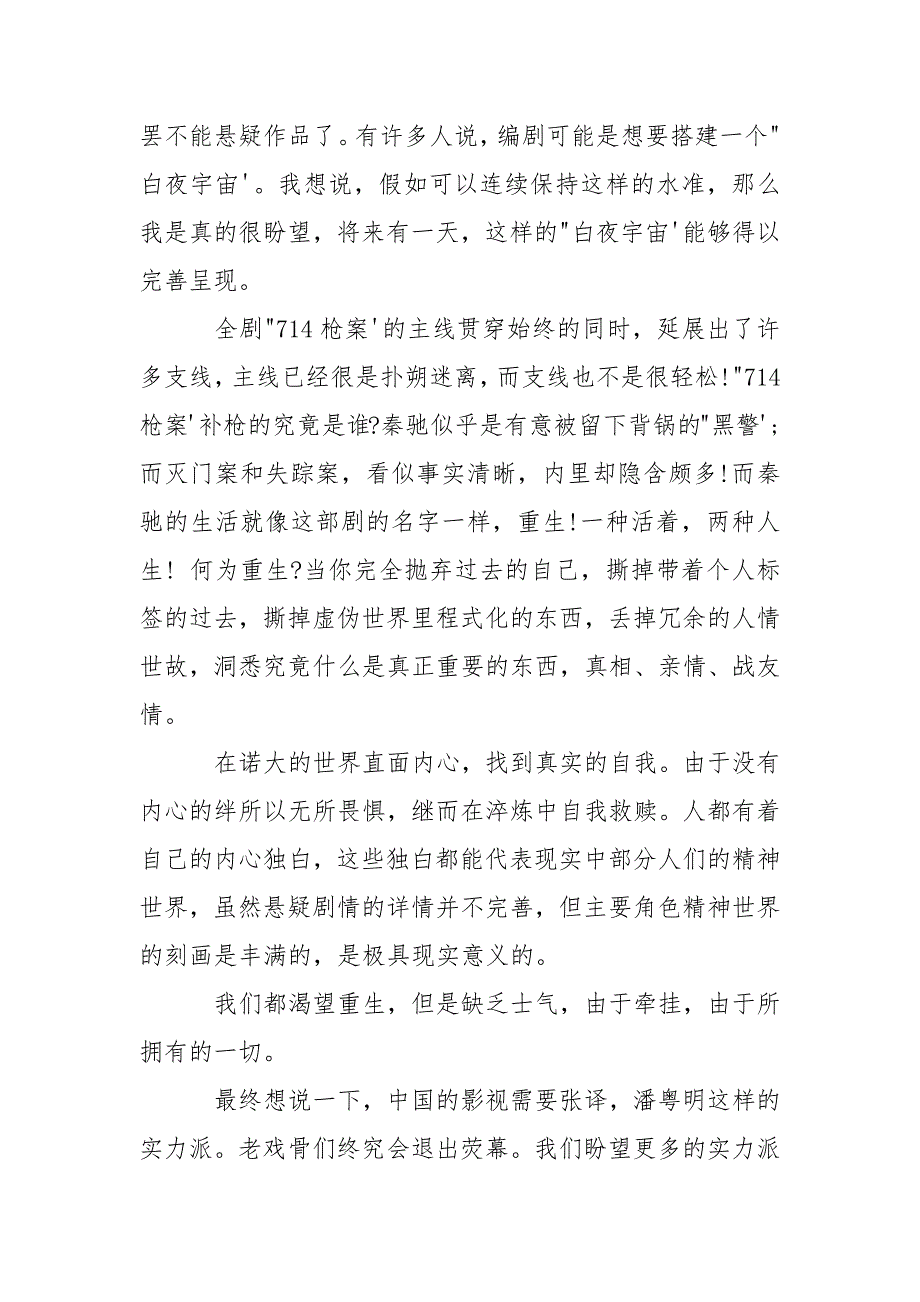 罢不能悬疑作品了。有许多人说，编剧可能是想要搭建一个"
白夜宇宙'。我想说，假如可以连续保持这样的水准，那么
我是真的很盼望，将来有一天，这样的"白夜宇宙'能够得以
完善呈现。
全剧"714 枪案'的主线贯穿始终的同时，延展出了许
多支线，主线已经很是扑朔迷离，而支线也不是很轻松！"714
枪案'补枪的究竟是谁？秦驰似乎是有意被留下背锅的"黑警'；
而灭门案和失踪案，看似事实清晰，内里却隐含颇多！而秦
驰的生活就像这部剧的名字一样，重生！一种活着，两种人
生！ 何为重生？当你完全抛弃过去的自己，撕掉带着个人标
签的过去，撕掉虚伪世界里程式化的东西，丢掉冗余的人情
世故，洞悉究竟什么是真正重要的东西，真相、亲情、战友
情。
在诺大的世界直面内心，找到真实的自我。由于没有
内心的绊所以无所畏惧，继而在淬炼中自我救赎。人都有着
自己的内心独白，这些独白都能代表现实中部分人们的精神
世界，虽然悬疑剧情的详情并不完善，但主要角色精神世界
的刻画是丰满的，是极具现实意义的。
我们都渴望重生，但是缺乏士气，由于牵挂，由于所
拥有的一切。
最终想说一下，中国的影视需要张译，潘粤明这样的
实力派。老戏骨们终究会退出荧幕。我们盼望更多的实力派